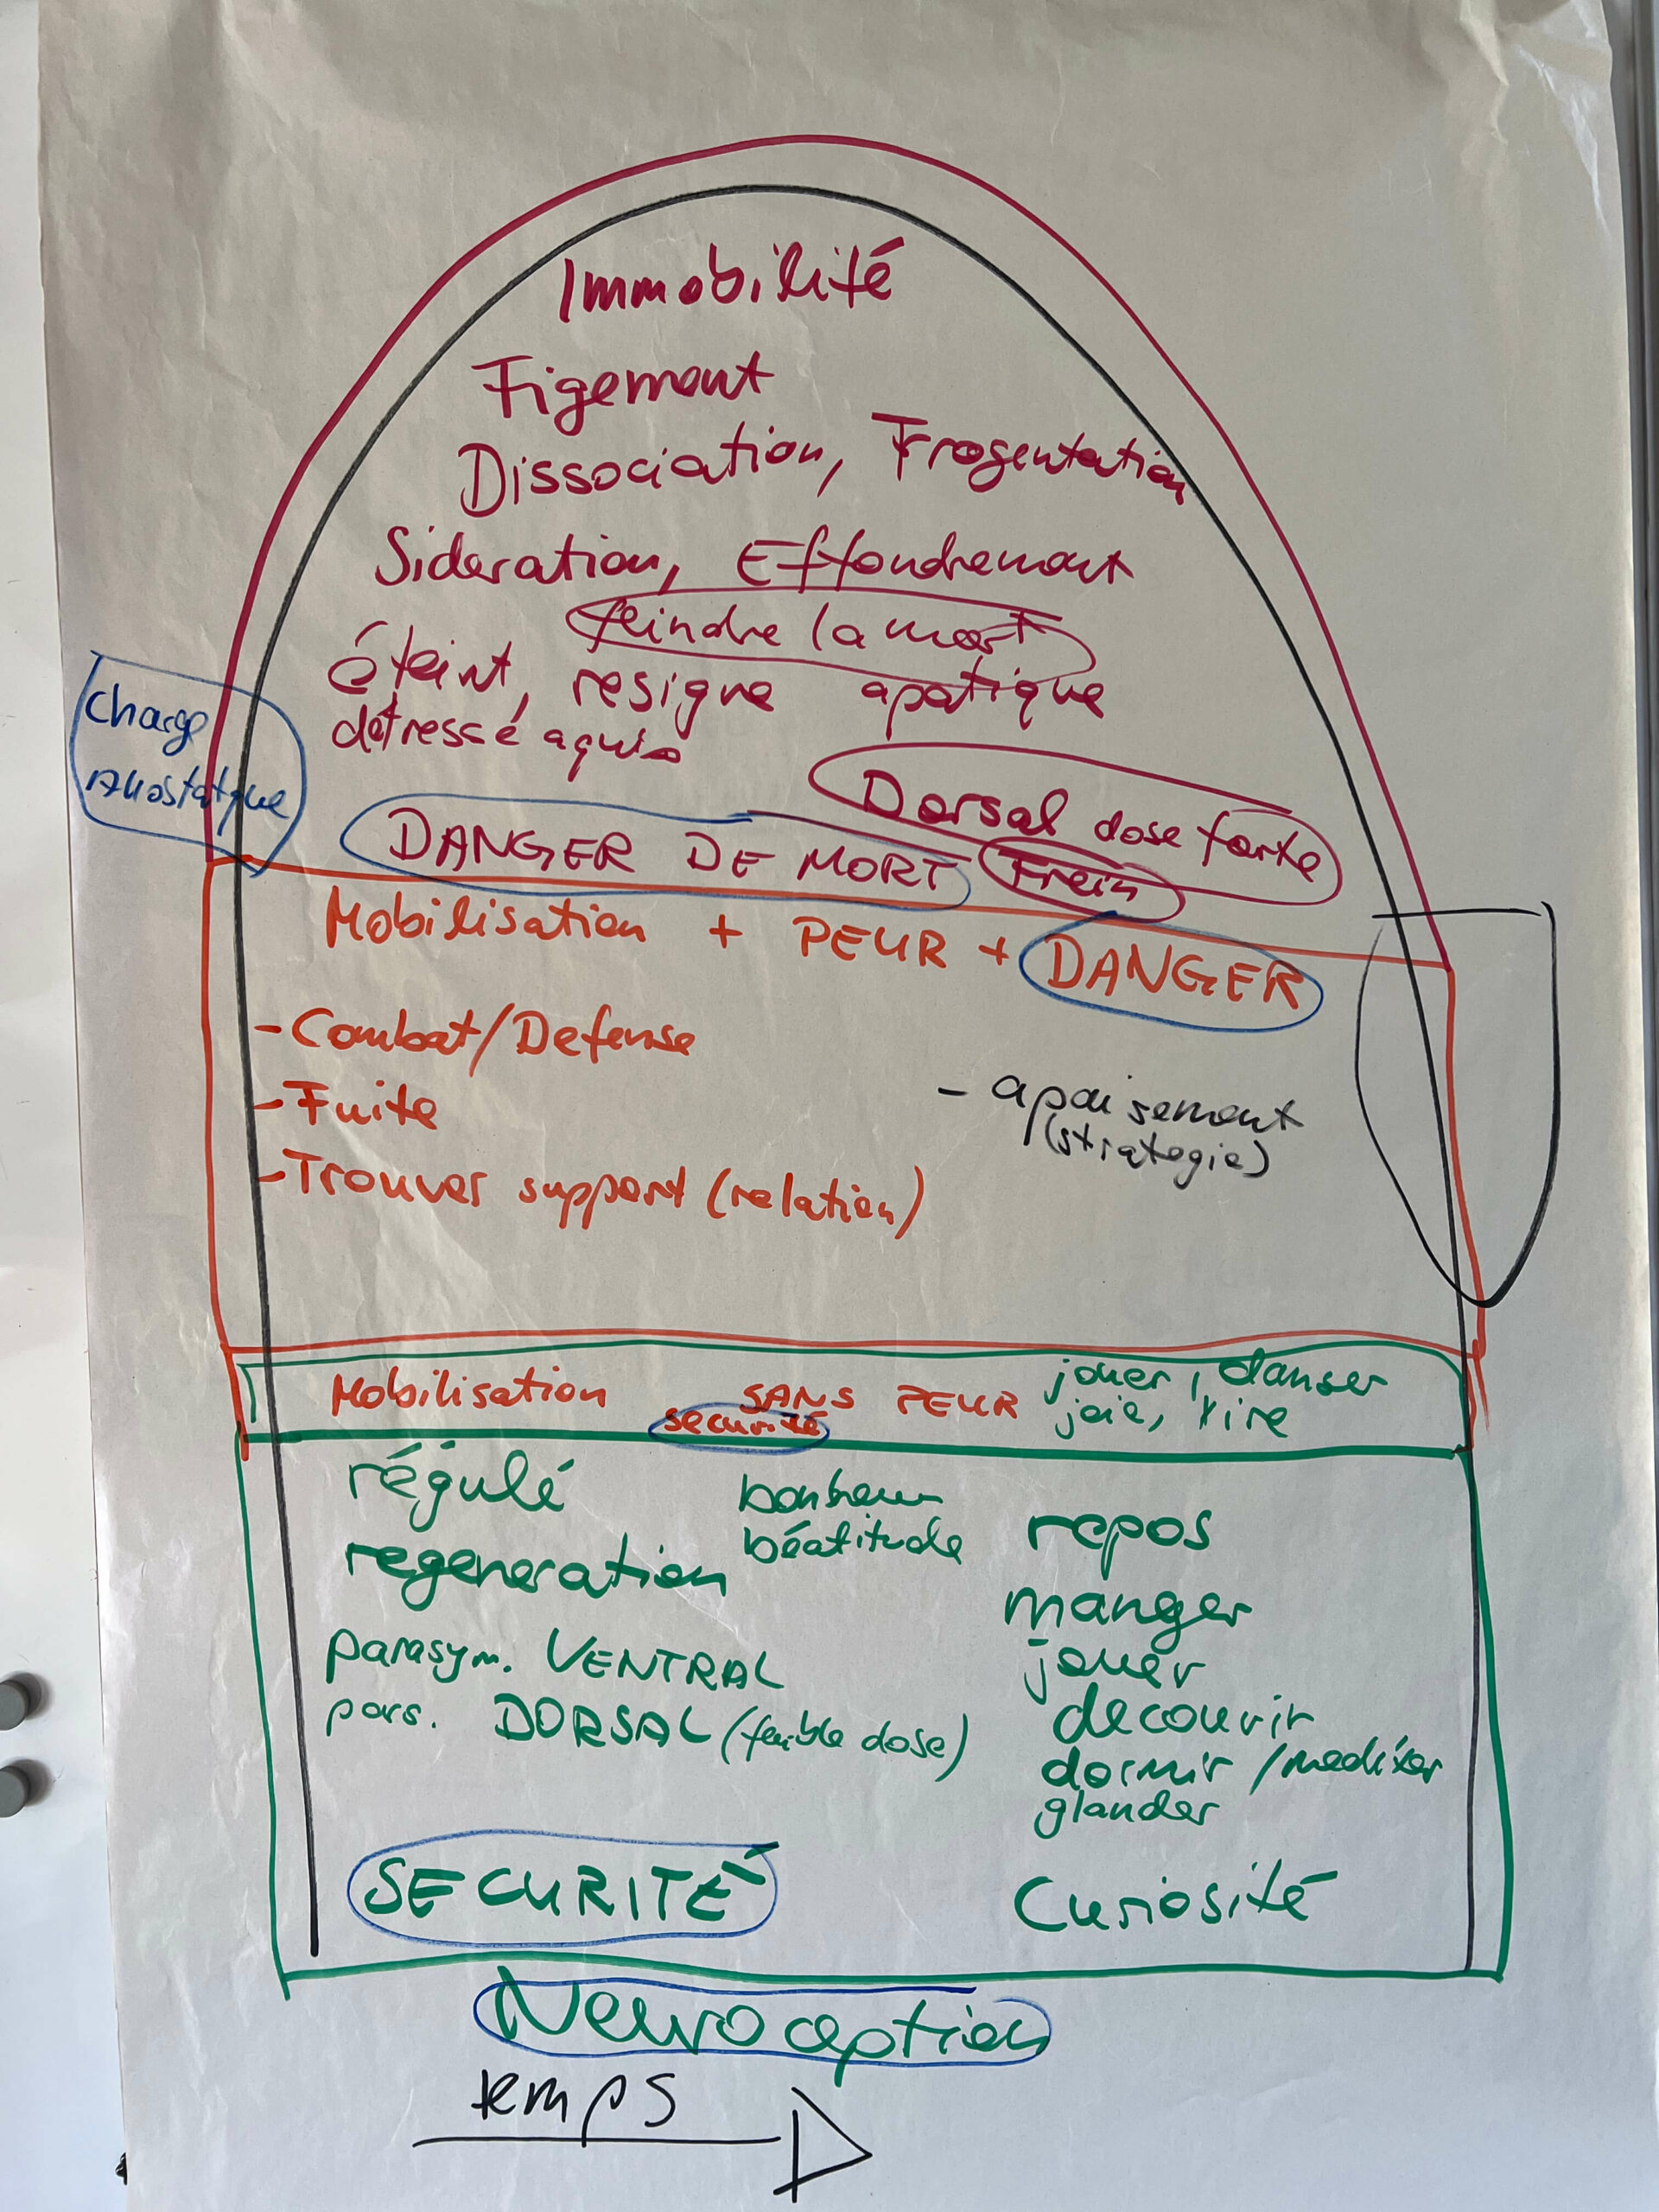 Immobilité
Figement
Dissociation, Fragentation
Sideration, Effondrement
feindre la mort
éteint, resigne apatique
détressé aquis
charge
Allostatique
Dorsal dose forte
DANGER DE MORT Frein
Mobilisation + PEUR + DANGER
- Combat/Defense
- Fuite
- apaisement
(strategie)
- Trouver support (relation)
Mobilisation SANS PEUR jouer, danser
securité joie, rire
régulé bonheur
béatitude repos
regeneration
manger
parasym. VENTRAL jouer
pars. DORSAL (faible dose) decouvrir
dormir / mediter
glander
SECURITÉ Curiosité
Neuroception
temps